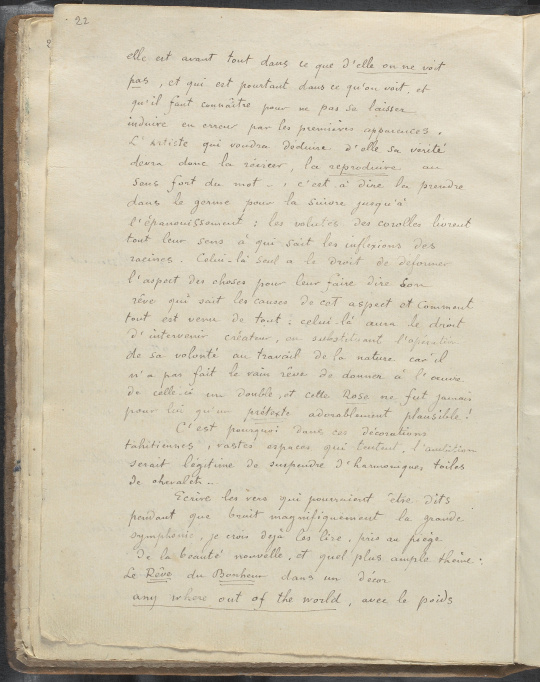 22
elle est avant tout dans ce que d'elle on ne voit
pas, et qui est pourtant dans ce qu'on voit, et
qu'il faut connaître pour ne pas se laisser
induire en erreur par les premières apparences.
L'Artiste qui voudra déduire d'elle sa vérité
devra donc la récréer, la reproduire au
sens fort du mot –, c'est à dire la prendre
dans le germe pour la suivre jusqu'à
l'épanouissement : les volutes des corolles livrent
tout leur sens à qui sait les inflexions des
racines. Celui-là seul a le droit de déformer
l'aspect des choses pour leur faire dire son
rêve qui sait les causes de cet aspect et comment
tout est venu de tout : celui-là aura le droit
d'intervenir créateur, en substituant l'opération
de sa volonté au travail de la nature car il
n'a pas fait le vain rêve de donner à l'œuvre
de celle-ci un double, et cette Rose ne fut jamais
pour lui qu'un prétexte adorablement plausible !
C'est pourquoi dans ces décorations
tahitiennes, vastes espaces qui tentent l'ambition
serait légitime de suspendre d'harmoniques toiles
de chevalet –
Ecrire les vers qui pourraient être dits
pendant que bruit magnifiquement la grande
symphonie, je crois déjà les lire, pris au piège
de la beauté nouvelle, et quel plus ample thème :
Le Rêve du Bonheur dans un décor
any where out of the world, avec le poids